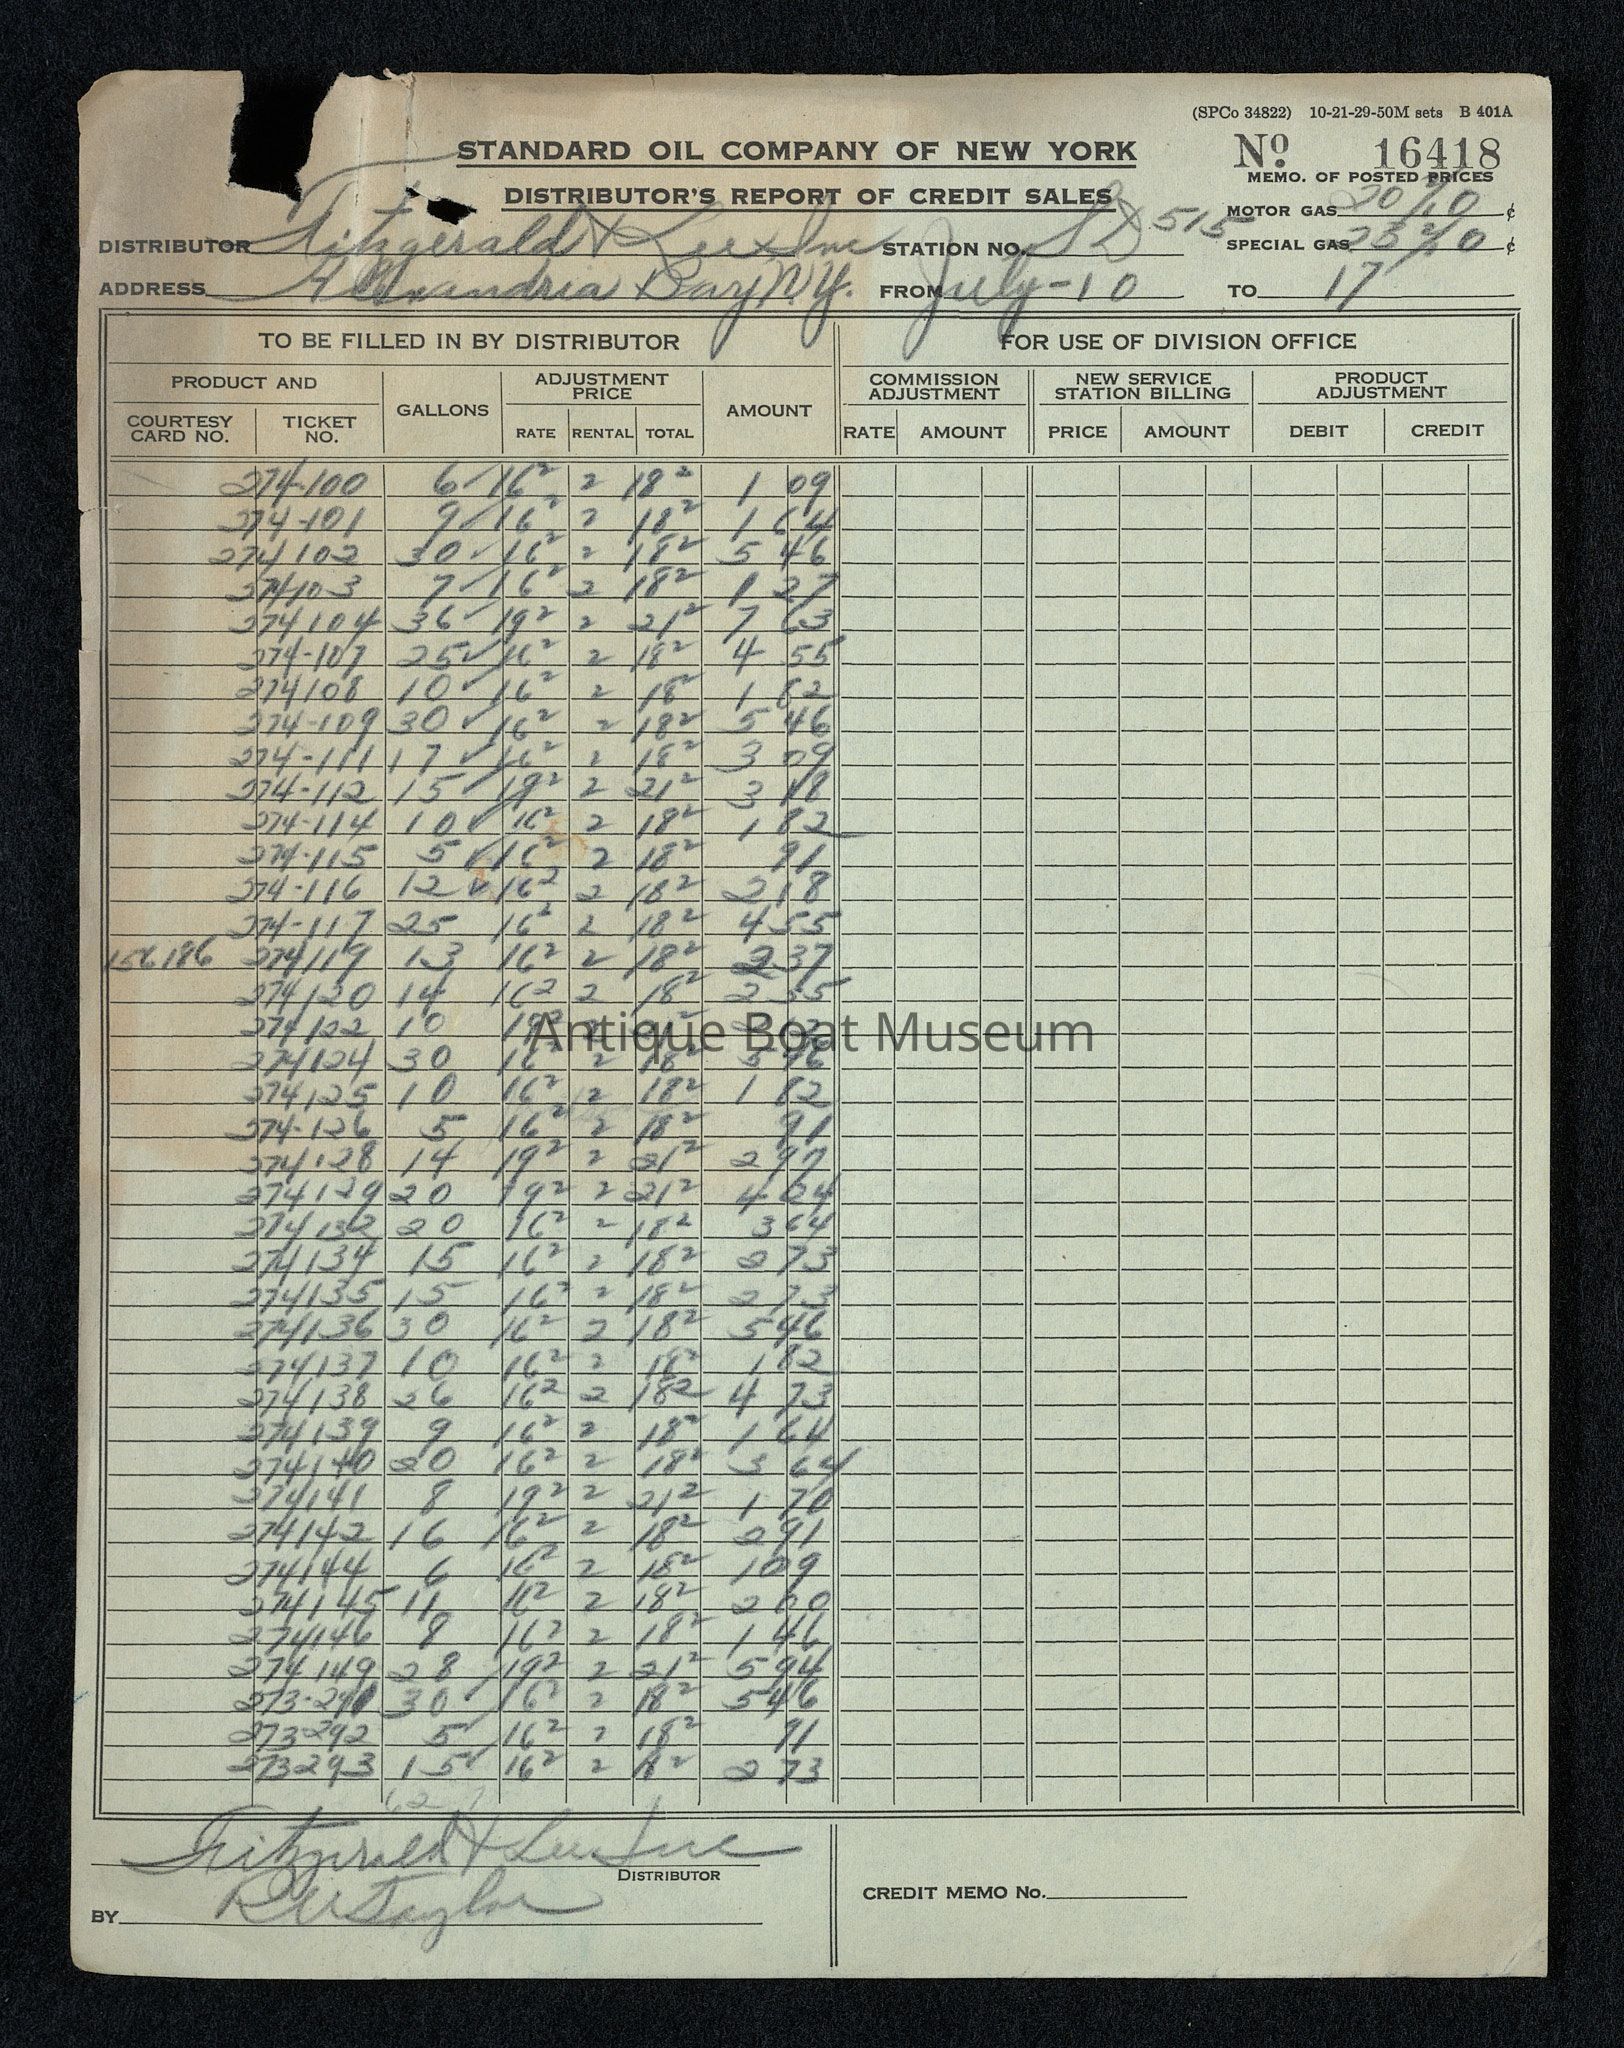 (SPCo 34822) 10-21-29-50M sets B 401A
STANDARD OIL COMPANY OF NEW YORK
No. 16418
DISTRIBUTOR'S REPORT OF CREDIT SALES
MEMO. OF POSTED PRICES
MOTOR GAS 20 2/10 ¢
DISTRIBUTOR Fitzgerald & Lee Inc STATION NO. SD 515 SPECIAL GAS 23 2/10 ¢
ADDRESS Alexandria Bay N.Y. FROM July-10 TO 17
TO BE FILLED IN BY DISTRIBUTOR FOR USE OF DIVISION OFFICE
PRODUCT AND GALLONS ADJUSTMENT PRICE AMOUNT COMMISSION ADJUSTMENT NEW SERVICE STATION BILLING PRODUCT ADJUSTMENT
COURTESY CARD NO. TICKET NO. RATE RENTAL TOTAL RATE AMOUNT PRICE AMOUNT DEBIT CREDIT
274-100 6 ✓ 16² 2 18² 1 09
274-101 9 ✓ 16² 2 18² 1 64
274102 30 ✓ 16² 2 18² 5 46
274103 7 ✓ 16² 2 18² 1 27
274104 36 ✓ 19² 2 21² 7 63
274-107 25 ✓ 16² 2 18² 4 55
274108 10 ✓ 16² 2 18² 1 82
274-109 30 ✓ 16² 2 18² 5 46
274-111 17 ✓ 16² 2 18² 3 09
274-112 15 ✓ 19² 2 21² 3 18
274-114 10 ✓ 16² 2 18² 1 82
274-115 5 ✓ 16² 2 18² 91
274-116 12 ✓ 16² 2 18² 2 18
274-117 25 16² 2 18² 4 55
156186 274119 13 16² 2 18² 2 37
274120 14 16² 2 18² 2 55
274122 10 19² 2 21² 2 12
Antique Boat Museum
274124 30 16² 2 18² 5 46
274125 10 16² 2 18² 1 82
274-126 5 16² 2 18² 91
274128 14 19² 2 21² 2 97
274129 20 19² 2 21² 4 24
274132 20 16² 2 18² 3 64
274134 15 16² 2 18² 2 73
274135 15 16² 2 18² 2 73
274136 30 16² 2 18² 5 46
274137 10 16² 2 18² 1 82
274138 26 16² 2 18² 4 73
274139 9 16² 2 18² 1 64
274140 20 16² 2 18² 3 64
274141 8 19² 2 21² 1 70
274142 16 16² 2 18² 2 91
274144 6 16² 2 18² 1 09
274145 11 16² 2 18² 2 00
274146 8 16² 2 18² 1 46
274149 28 19² 2 21² 5 94
273-291 30 ✓ 16² 2 18² 5 46
273292 5 ✓ 16² 2 18² 91
273293 15 ✓ 16² 2 18² 2 73
Fitzgerald & Lee Inc
DISTRIBUTOR
CREDIT MEMO No.
BY Taylor